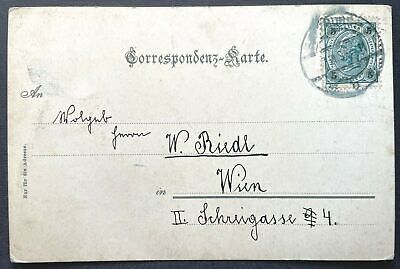 Correspondenz-Karte.
An
Wolgeb
Herrn
W. Riedl
Wien
in
II. Schreigasse 4.
Nur für die Adresse.
5 5
5 5